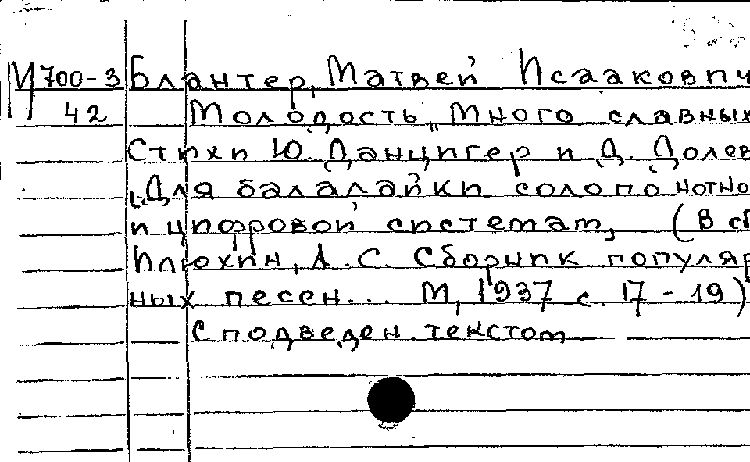 М 700-3 Блантер, Матвей Исаакович
42 Молодость „Много славных
Стихи Ю. Данцигер и Д. Долев
„Для балалайки соло по нотно
и цифровой системам, (В сб
Илюхин, А. С. Сборник популяр
ных песен... М, 1937 с. 17 - 19)
С подведен. текстом